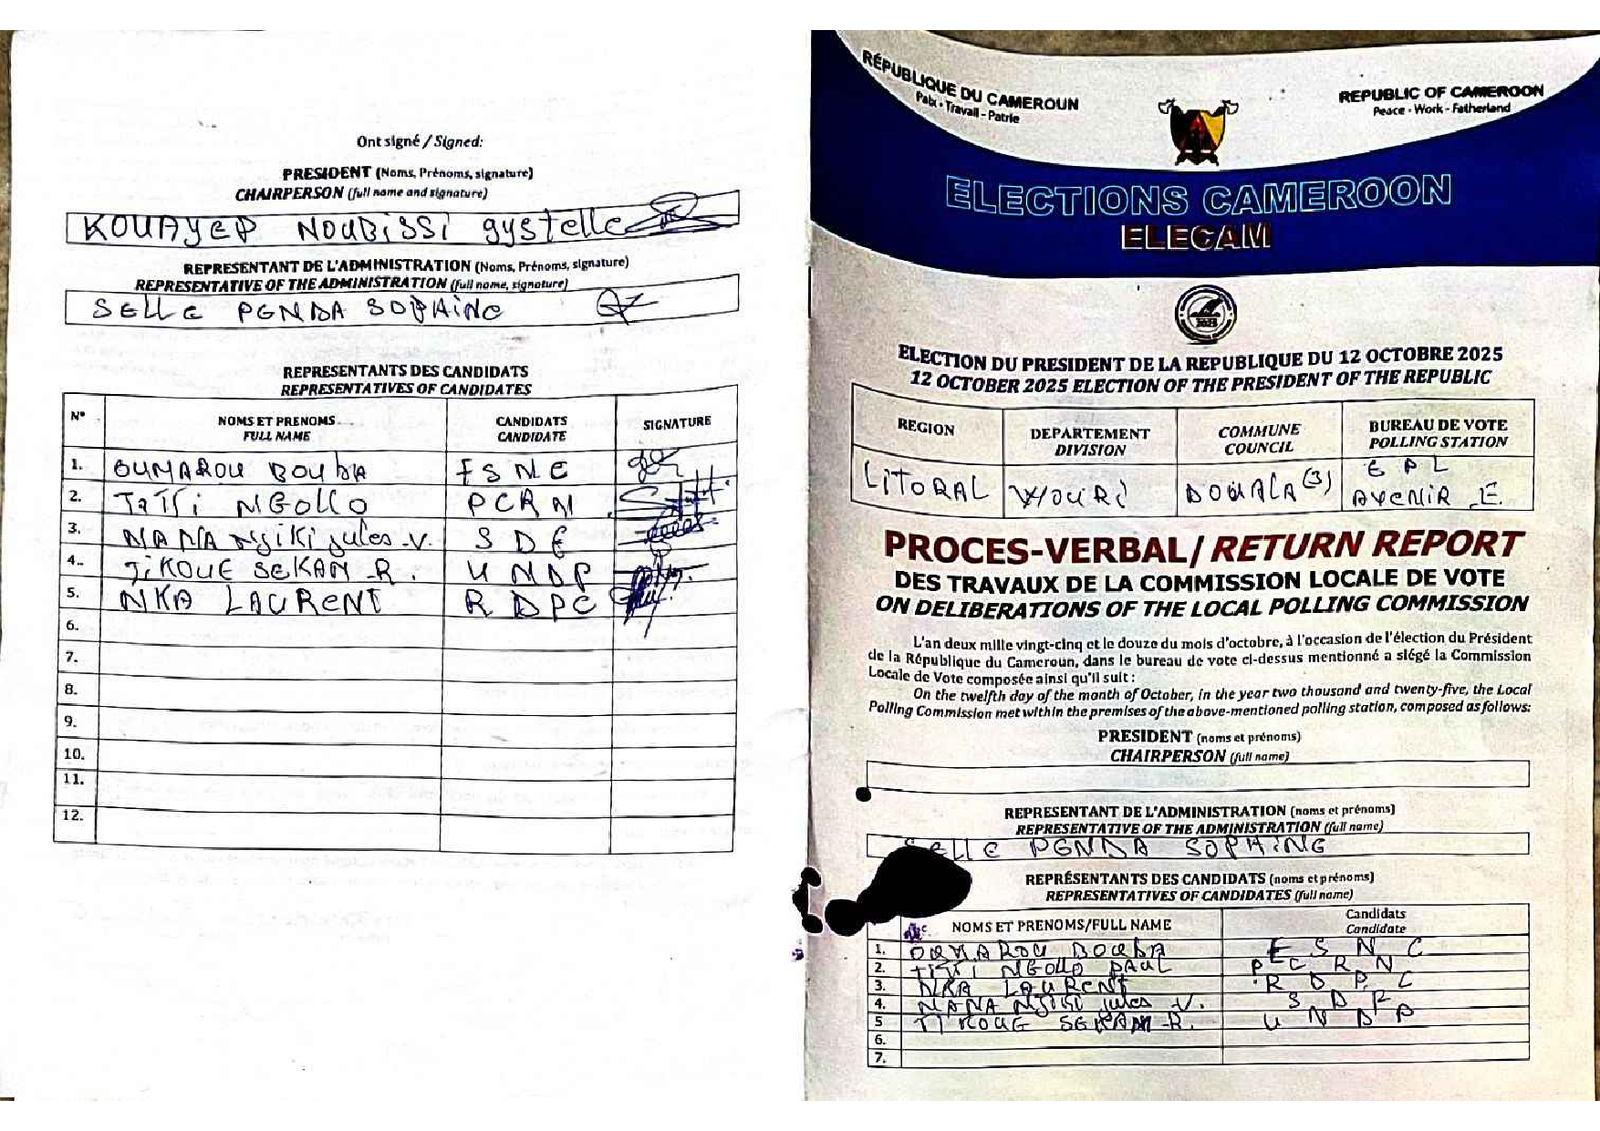 Ont signé / Signed:
PRESIDENT (Noms, Prénoms, signature)
CHAIRPERSON (full name and signature)
KOUAYEP NOUBISSI gystelle
REPRESENTANT DE L'ADMINISTRATION (Noms, Prénoms, signature)
REPRESENTATIVE OF THE ADMINISTRATION (full name, signature)
SELLE PENDA SOPHING
REPRESENTANTS DES CANDIDATS
REPRESENTATIVES OF CANDIDATES
N° NOMS ET PRENOMS CANDIDATS SIGNATURE
FULL NAME CANDIDATE
1. OUMAROU BOUBA FSNC
2. NGOLLO PCRN
3. NANA NJIKI jules V. SDF
4. TIKOUE SEKAM R. UNDP
5. NKA LAURENT RDPC
6.
7.
8.
9.
10.
11.
12.
RÉPUBLIQUE DU CAMEROUN
Paix - Travail - Patrie
REPUBLIC OF CAMEROON
Peace - Work - Fatherland
ELECTIONS CAMEROON
ELECAM
ELECTION DU PRESIDENT DE LA REPUBLIQUE DU 12 OCTOBRE 2025
12 OCTOBER 2025 ELECTION OF THE PRESIDENT OF THE REPUBLIC
REGION DEPARTEMENT COMMUNE BUREAU DE VOTE
DIVISION COUNCIL POLLING STATION
LITORAL WOURI DOUALA (3) EPL
AVENIR E
PROCES-VERBAL/ RETURN REPORT
DES TRAVAUX DE LA COMMISSION LOCALE DE VOTE
ON DELIBERATIONS OF THE LOCAL POLLING COMMISSION
L'an deux mille vingt-cinq et le douze du mois d'octobre, à l'occasion de l'élection du Président
de la République du Cameroun, dans le bureau de vote ci-dessus mentionné a siégé la Commission
Locale de Vote composée ainsi qu'il suit :
On the twelfth day of the month of October, in the year two thousand and twenty-five, the Local
Polling Commission met within the premises of the above-mentioned polling station, composed as follows:
PRESIDENT (noms et prénoms)
CHAIRPERSON (full name)
REPRESENTANT DE L'ADMINISTRATION (noms et prénoms)
REPRESENTATIVE OF THE ADMINISTRATION (full name)
Selle PENDA SOPHING
REPRÉSENTANTS DES CANDIDATS (noms et prénoms)
REPRESENTATIVES OF CANDIDATES (full name)
NOMS ET PRENOMS/FULL NAME Candidats
Candidate
1. OUMAROU BOUBA FSNC
2. NGOLLO PAUL PCRN
3. NKA LAURENT RDPC
4. NANA NJIKI jules V. SDF
5 TIKOUE SEKAM R. UNDP
6.
7.